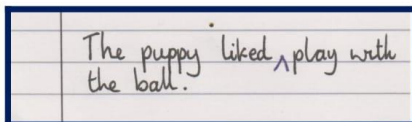 The puppy liked ^ play with
the ball.